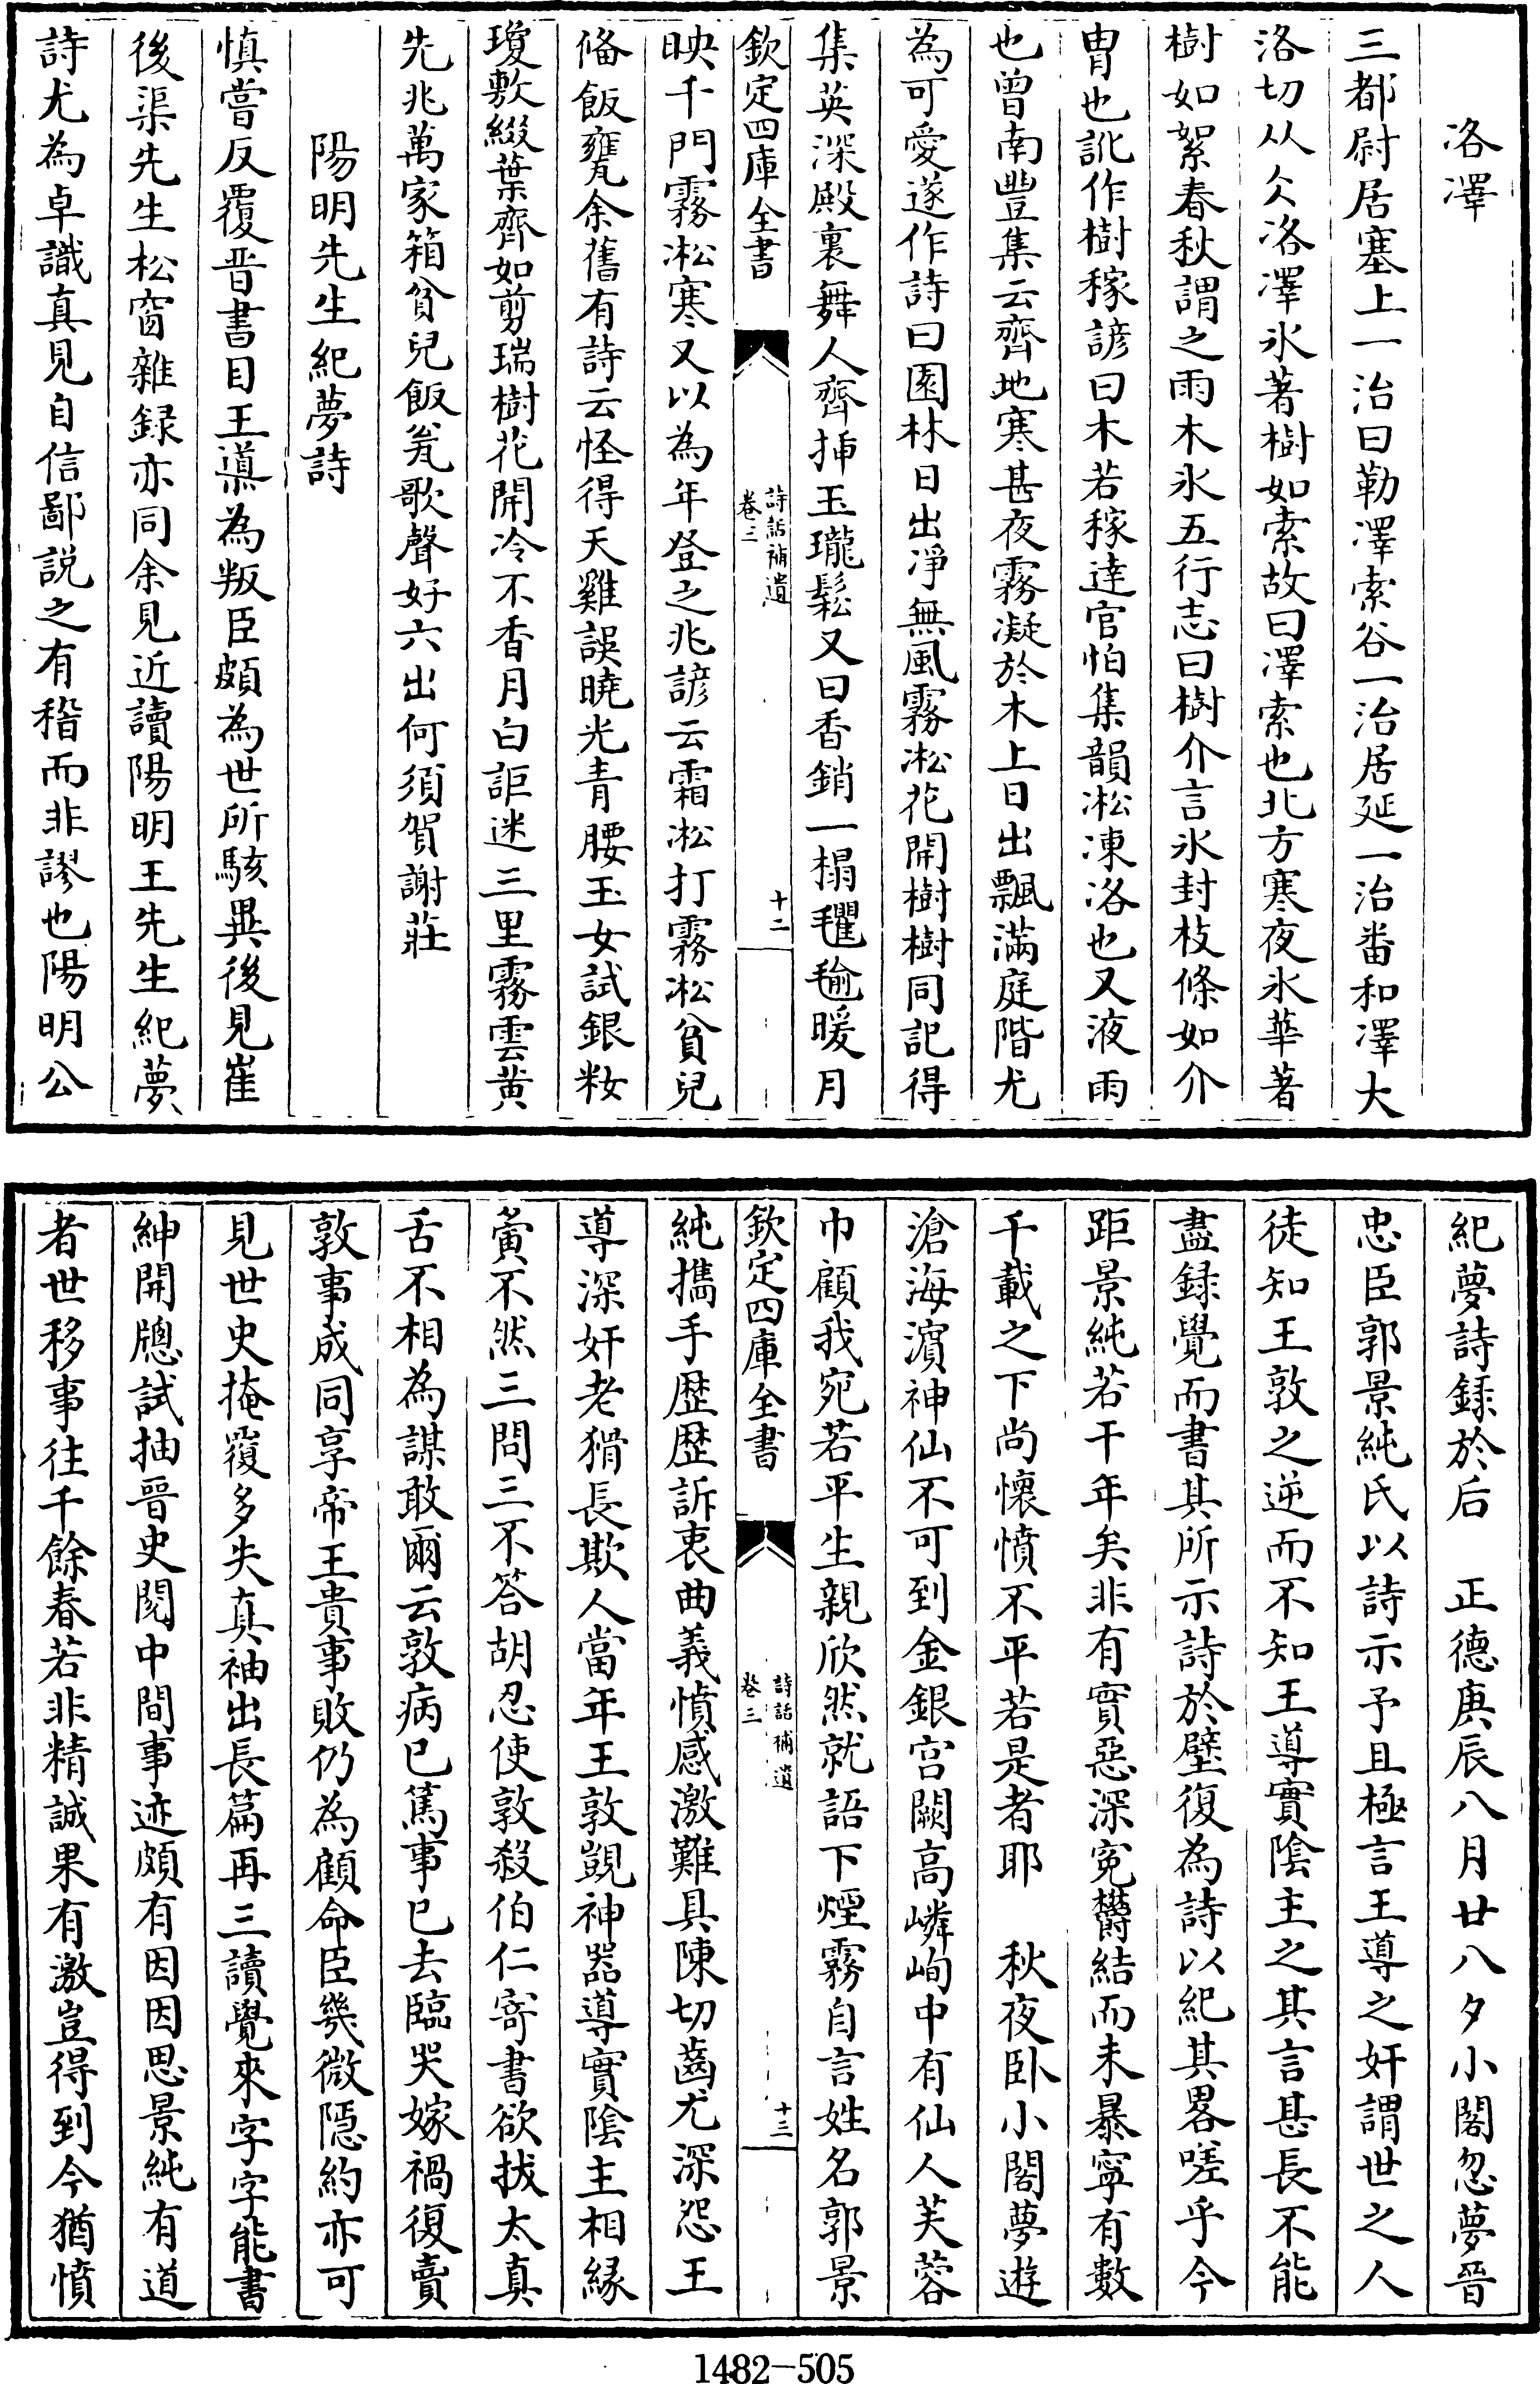 洛澤
三都尉居塞上一治曰勒澤索谷一治居延一治番和澤大
洛切从仌洛澤氷著樹如索故曰澤索也北方寒夜氷華著
樹如絮春秋謂之雨木氷五行志曰樹介言氷封枝條如介
胄也訛作樹稼諺曰木若稼達官怕集韻凇凍洛也又液雨
也曾南豐集云齊地寒甚夜霧凝於木上日出飄滿庭階尤
為可愛遂作詩曰園林日出凈無風霧凇花開樹樹同記得
集英深殿裏舞人齊揷玉瓏鬆又曰香銷一榻氍毹暖月
欽定四庫全書
詩話補遺
卷三
十二
映千門霧凇寒又以為年登之兆諺云霜凇打霧凇貧兒
偹飯甕余舊有詩云怪得天雞誤曉光青腰玉女試銀粧
瓊敷綴葉齊如剪瑞樹花開冷不香月白詎迷三里霧雲黄
先兆萬家箱貧兒飯瓮歌聲好六出何須賀謝莊
陽明先生紀夢詩
慎嘗反覆晋書目王導為叛臣頗為世所駭異後見崔
後渠先生松窗雜録亦同余見近讀陽明王先生紀夢
詩尤為卓識真見自信鄙説之有稽而非謬也陽明公
紀夢詩録於后　正德庚辰八月廿八夕小閣忽夢晉
忠臣郭景純氏以詩示予且極言王導之奸謂世之人
徒知王敦之逆而不知王導實陰主之其言甚長不能
盡録覺而書其所示詩於壁復為詩以紀其畧嗟乎今
距景純若干年矣非有實惡深寃鬱結而未暴寧有數
千載之下尚懷憤不平若是者耶　秋夜卧小閣夢遊
滄海濵神仙不可到金銀宫闕高嶙峋中有仙人芙蓉
巾顧我宛若平生親欣然就語下煙霧自言姓名郭景
欽定四庫全書
詩話補遺
卷三
十三
純携手歴歴訴衷曲義憤感激難具陳切齒尤深怨王
導深奸老猾長欺人當年王敦覬神器導實陰主相縁
夤不然三問三不答胡忍使敦殺伯仁寄書欲拔太真
舌不相為謀敢爾云敦病已篤事已去臨哭嫁禍復賣
敦事成同享帝王貴事敗仍為顧命臣幾微隱約亦可
見世史掩覆多失真袖出長篇再三讀覺來字字能書
紳開牕試抽晉史閲中間事迹頗有因因思景純有道
者世移事往千餘春若非精誠果有激豈得到今猶憤
1482-505